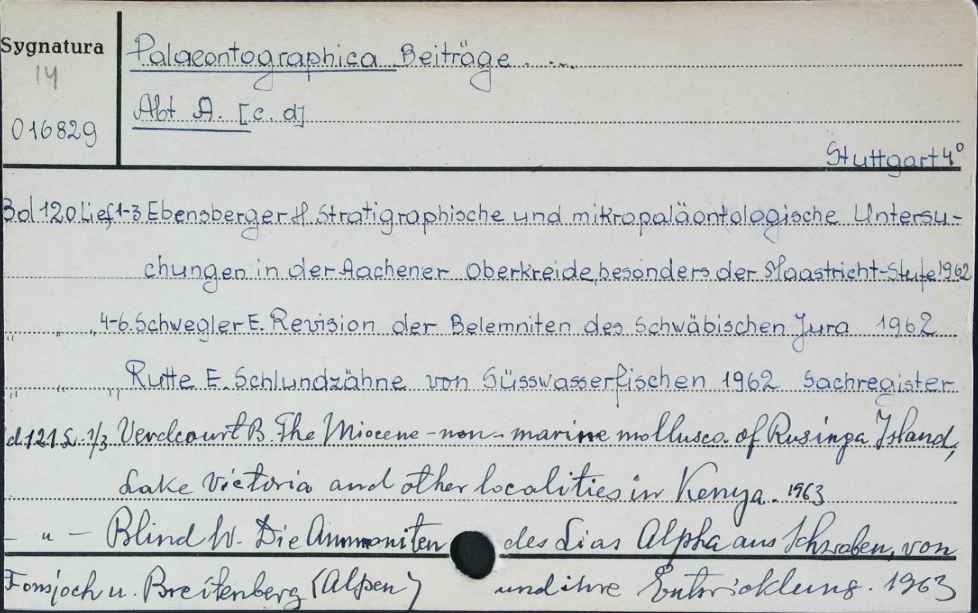 Sygnatura
14
016829
Palaeontographica Beiträge . ...
Abt A. [c. d]
Stuttgart 4°
Bd 120 Lief 1-3 Ebensberger H. Stratigraphische und mikropaläontologische Untersu-
chungen in der Aachener Oberkreide, besonders der Maastricht-Stufe 1962
" " 4-6. Schwegler E. Revision der Belemniten des Schwäbischen Jura 1962
" " " Rutte E. Schlundzähne von Süsswasserfischen 1962 Sachregister
d 121 L. 1/3 Verdcourt B. The Miocene - non - marine mollusca of Rusinga Island,
Lake Victoria and other localities in Kenya. 1963
- " - Blind W. Die Ammoniten des Lias Alpha aus Schwaben, von
Fonsjoch u. Breitenberg (Alpen) und ihre Entwicklung. 1963